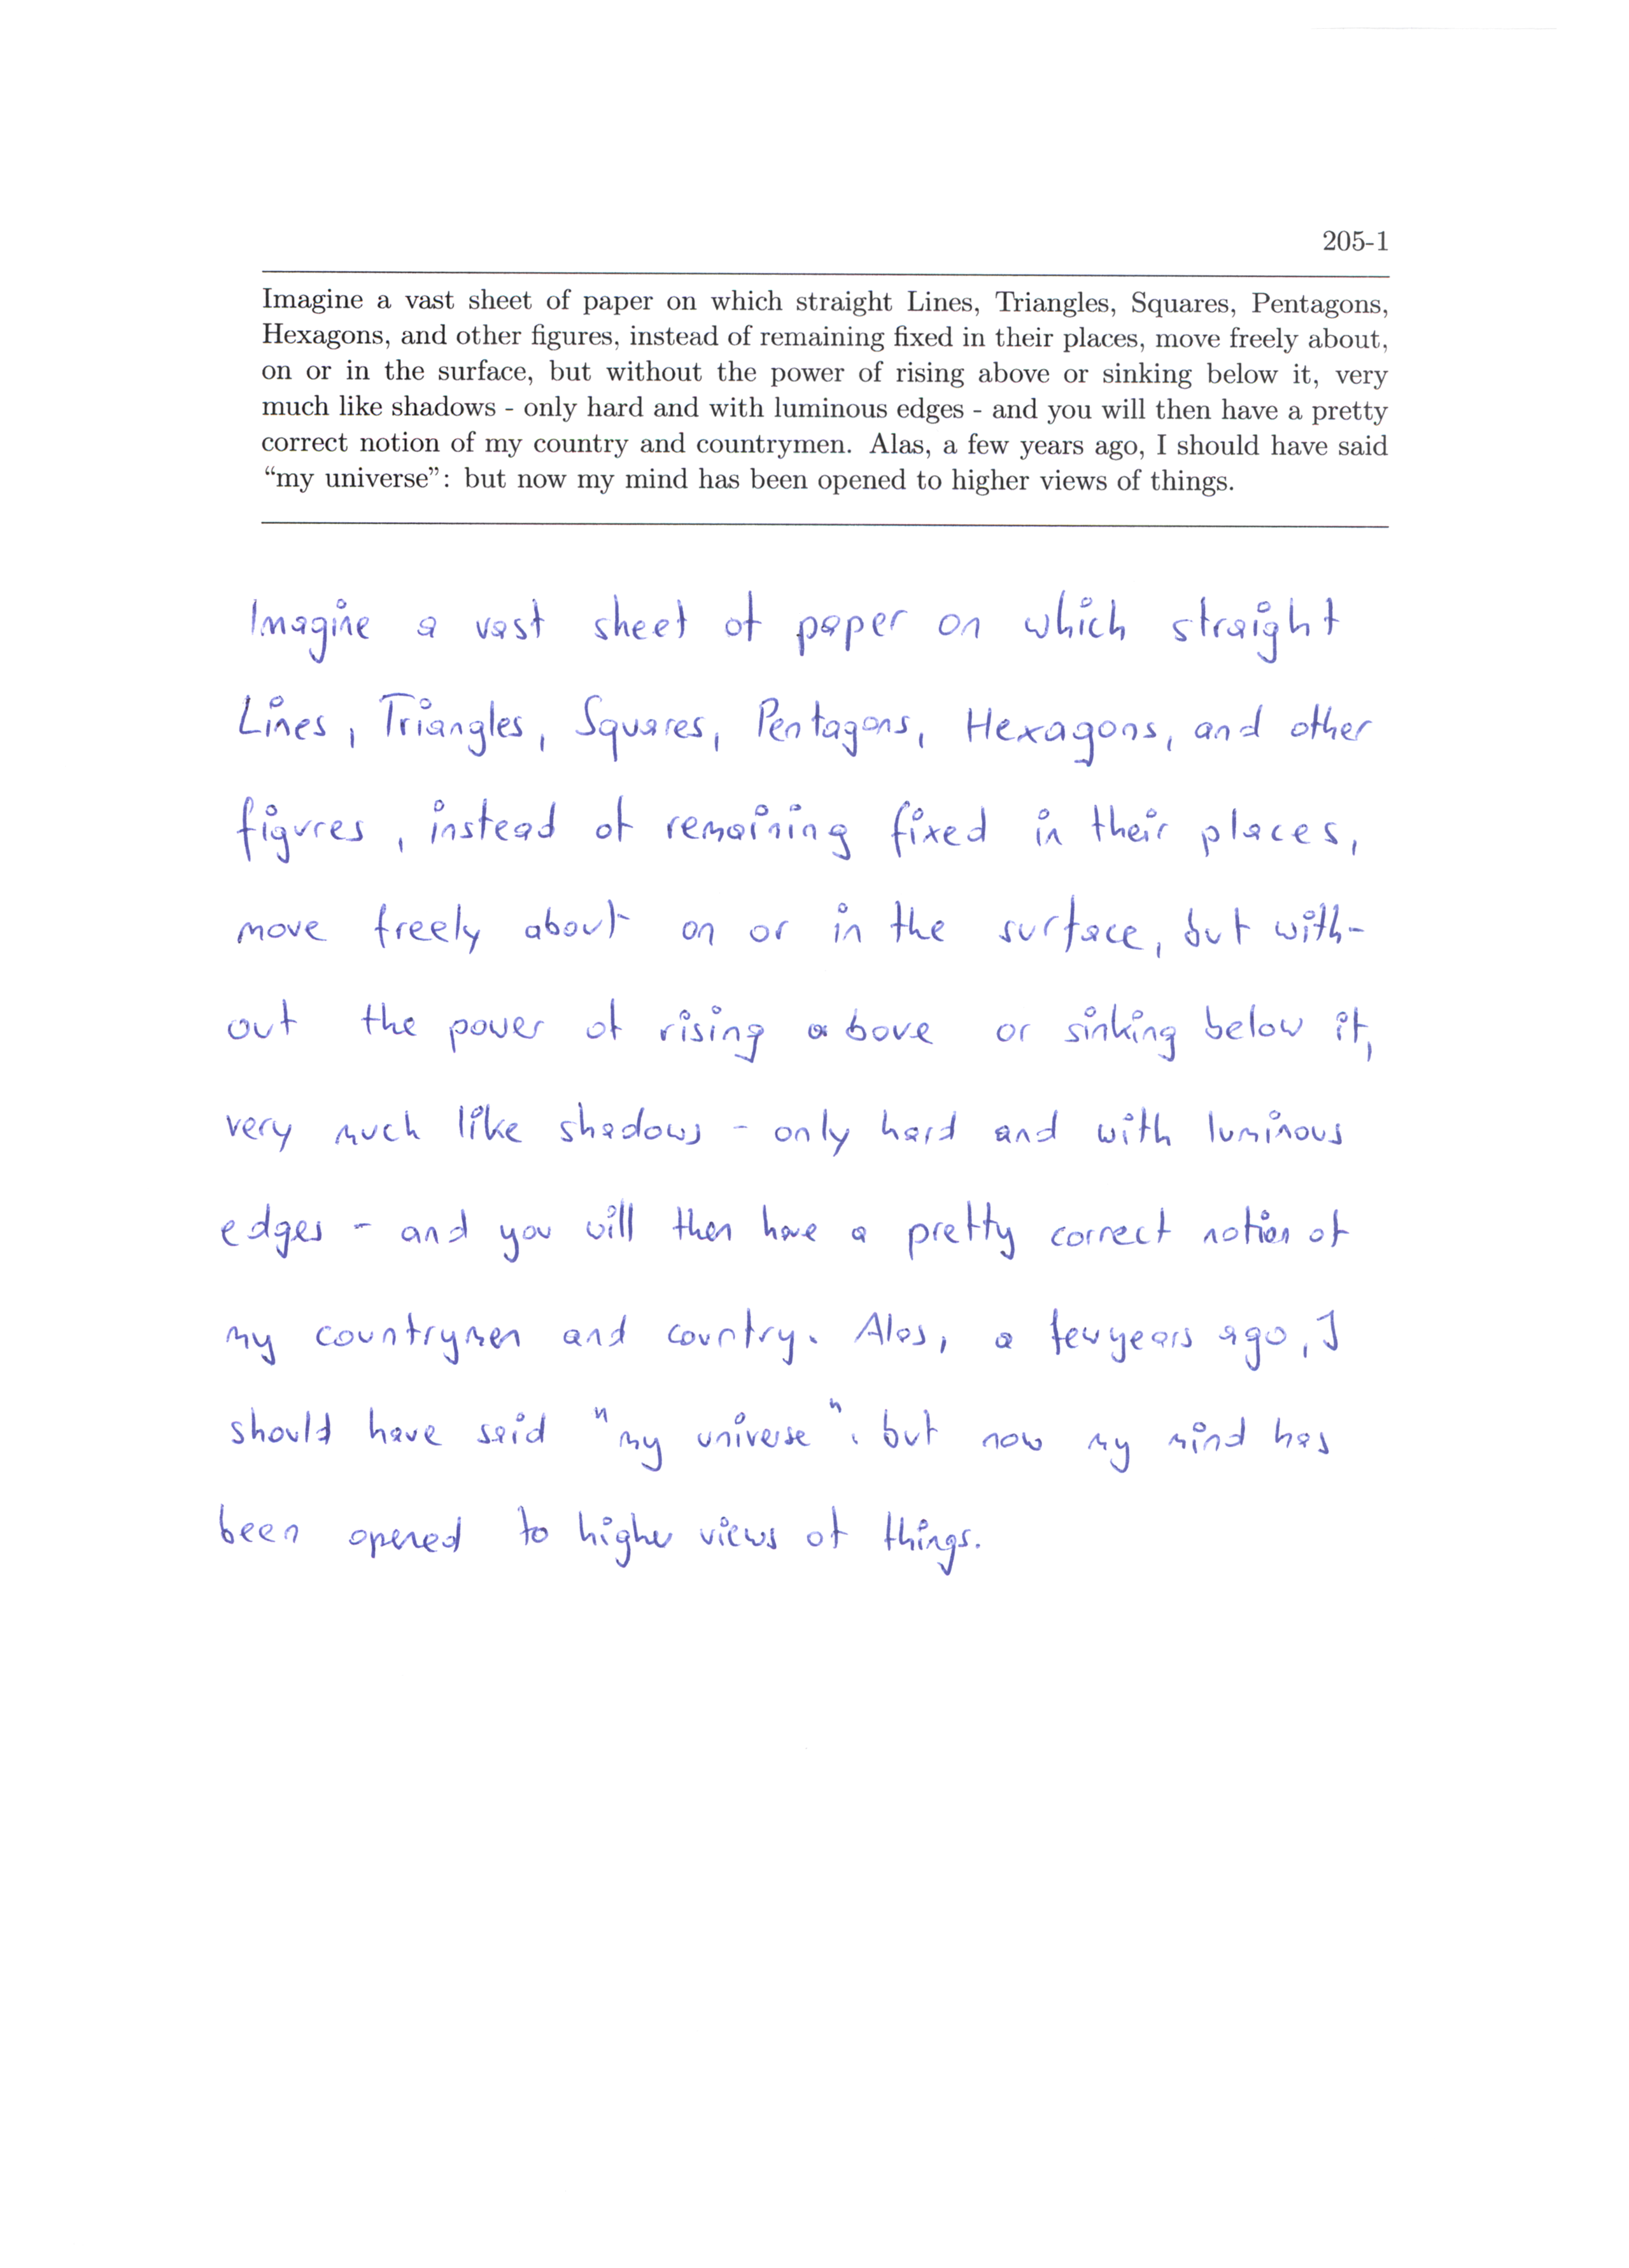 205-1
Imagine a vast sheet of paper on which straight Lines, Triangles, Squares, Pentagons,
Hexagons, and other figures, instead of remaining fixed in their places, move freely about,
on or in the surface, but without the power of rising above or sinking below it, very
much like shadows - only hard and with luminous edges - and you will then have a pretty
correct notion of my country and countrymen. Alas, a few years ago, I should have said
“my universe”: but now my mind has been opened to higher views of things.
Imagine a vast sheet of paper on which straight
Lines, Triangles, Squares, Pentagons, Hexagons, and other
figures, instead of remaining fixed in their places,
move freely about on or in the surface, but with-
out the power of rising above or sinking below it,
very much like shadows - only hard and with luminous
edges - and you will then have a pretty correct notion of
my countrymen and country. Alas, a few years ago, I
should have said "my universe". but now my mind has
been opened to higher views of things.